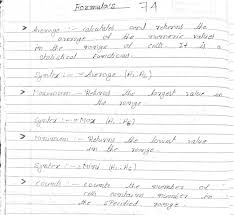 Formula's - 74
> Average :- calculates and returns the
average of the numeric values
in the range of cells. It is a
statistical functions.
Syntex :- = Average (A1:A2)
> Maximum - Returns the largest value in
the range.
Syntex :- = Max (A1:A2)
> Minimum - Returns the lowest value
in the range.
Syntex :- = Mini (A1:A2)
> Counts - counts the number of
cells contains number in
the specified range.